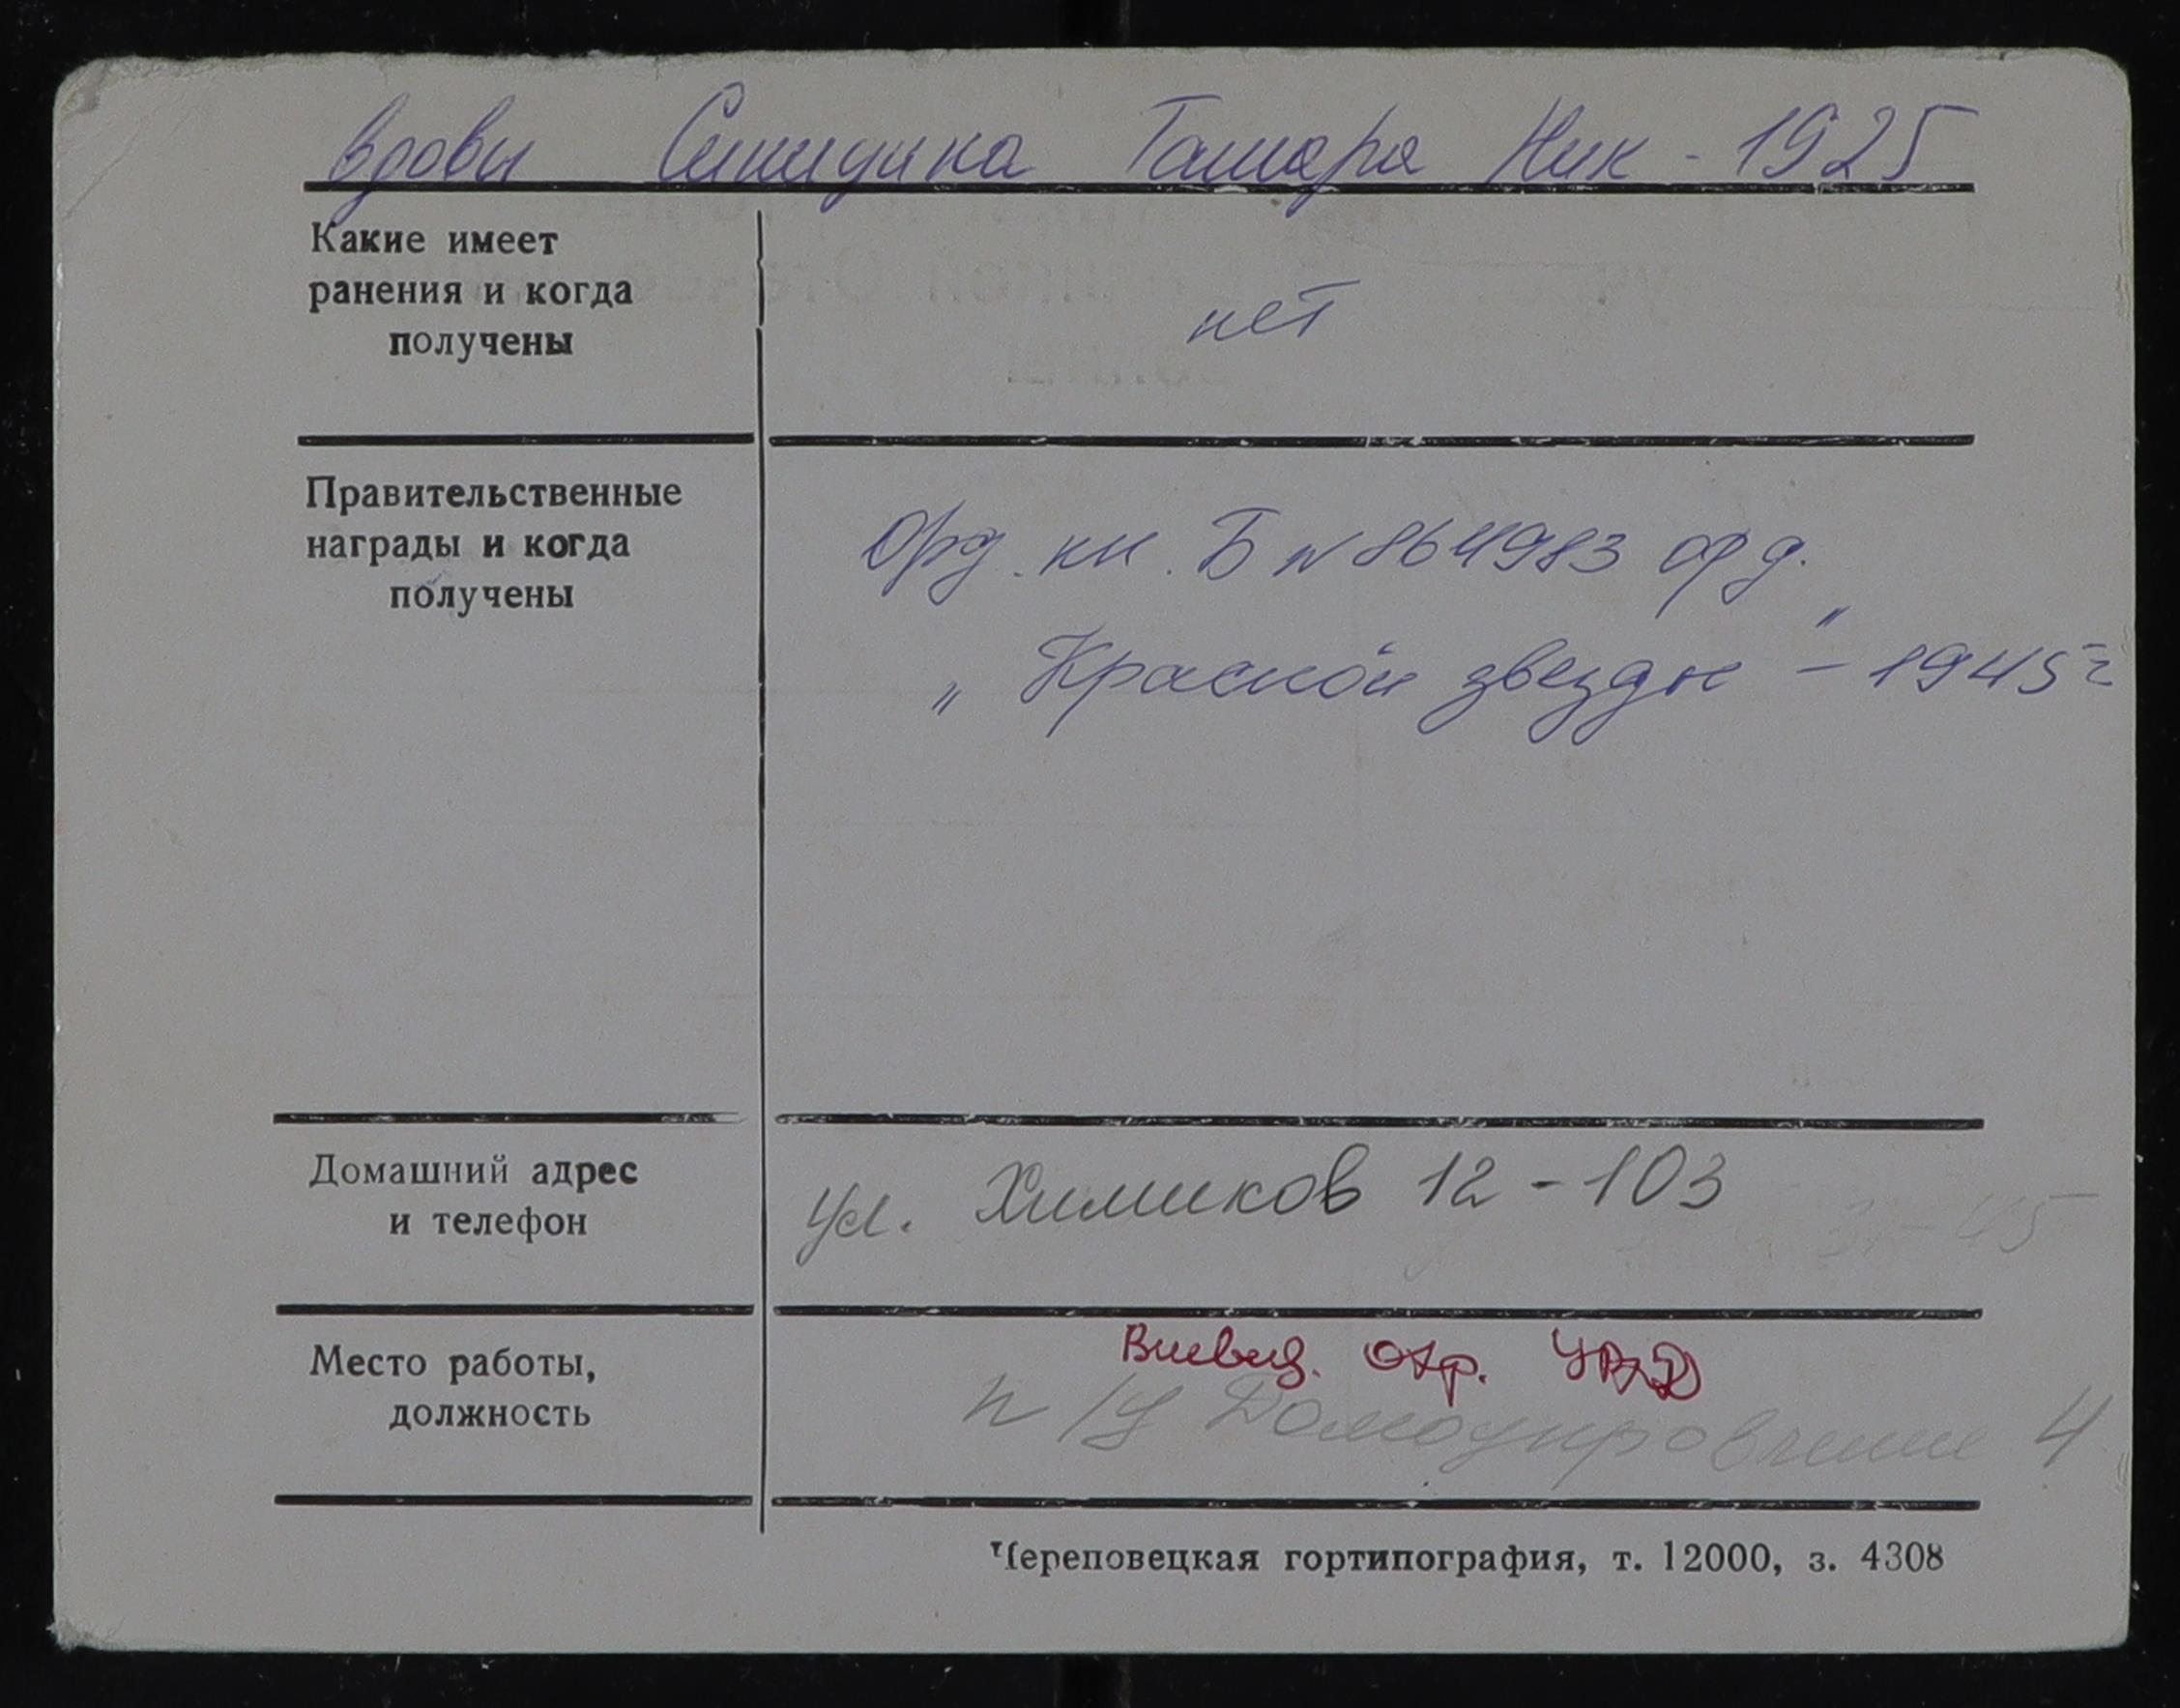 вдова Синицина Тамара Ник - 1925
Какие имеет
ранения и когда
получены
нет
Правительственные
награды и когда
получены
Орд. кн. Б № 864983 орд.
„ Красной звезды " - 1945 г
Домашний адрес
и телефон
ул. Химиков 12 - 103
Место работы,
должность
Вневед. охр. УВД
п/у Домоуправление 4
Череповецкая гортипография, т. 12000, з. 4308